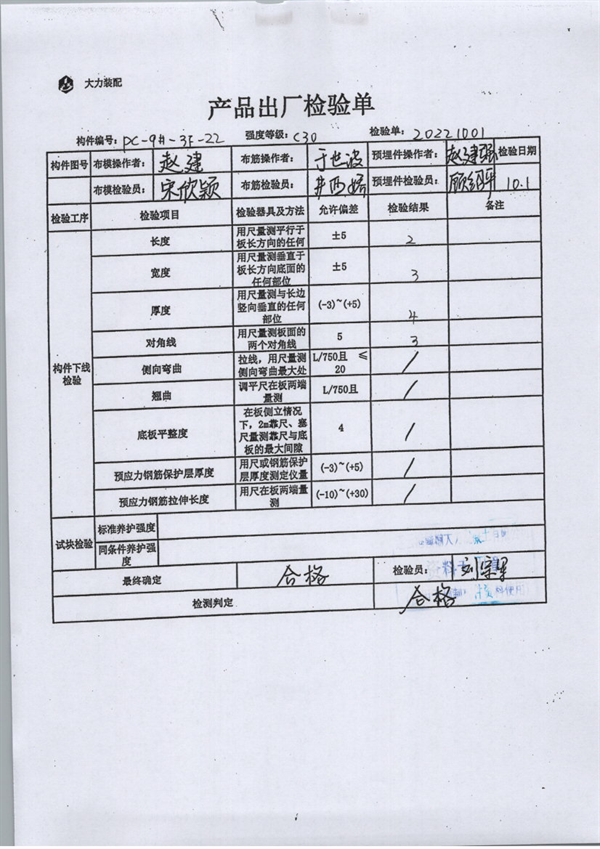 大力装配
产品出厂检验单
构件编号：PC-9#-3F-22 强度等级：C30 检验单：20221001
构件图号 布模操作者： 赵建 布筋操作者： 于世波 预埋件操作者： 赵建强 检验日期
布模检验员： 宋欣颖 布筋检验员： 预埋件检验员： 10.1
检验工序 检验项目 检验器具及方法 允许偏差 检验结果 备注
构件下线检验
长度 用尺量测平行于板长方向的任何 ±5 2
宽度 用尺量测垂直于板长方向底面的任何部位 ±5 3
厚度 用尺量测与长边竖向垂直的任何部位 (-3)~(+5) 4
对角线 用尺量测板面的两个对角线 5 3
侧向弯曲 拉线，用尺量测侧向弯曲最大处 L/750且 ≤20 /
翘曲 调平尺在板两端量测 L/750且 /
底板平整度 在板侧立情况下，2m靠尺、塞尺量测靠尺与底板的最大间隙 4 /
预应力钢筋保护层厚度 用尺或钢筋保护层厚度测定仪量 (-3)~(+5) /
预应力钢筋拉伸长度 用尺在板两端量测 (-10)~(+30) /
试块检验
标准养护强度
同条件养护强度
最终确定 合格 检验员：
检测判定 合格